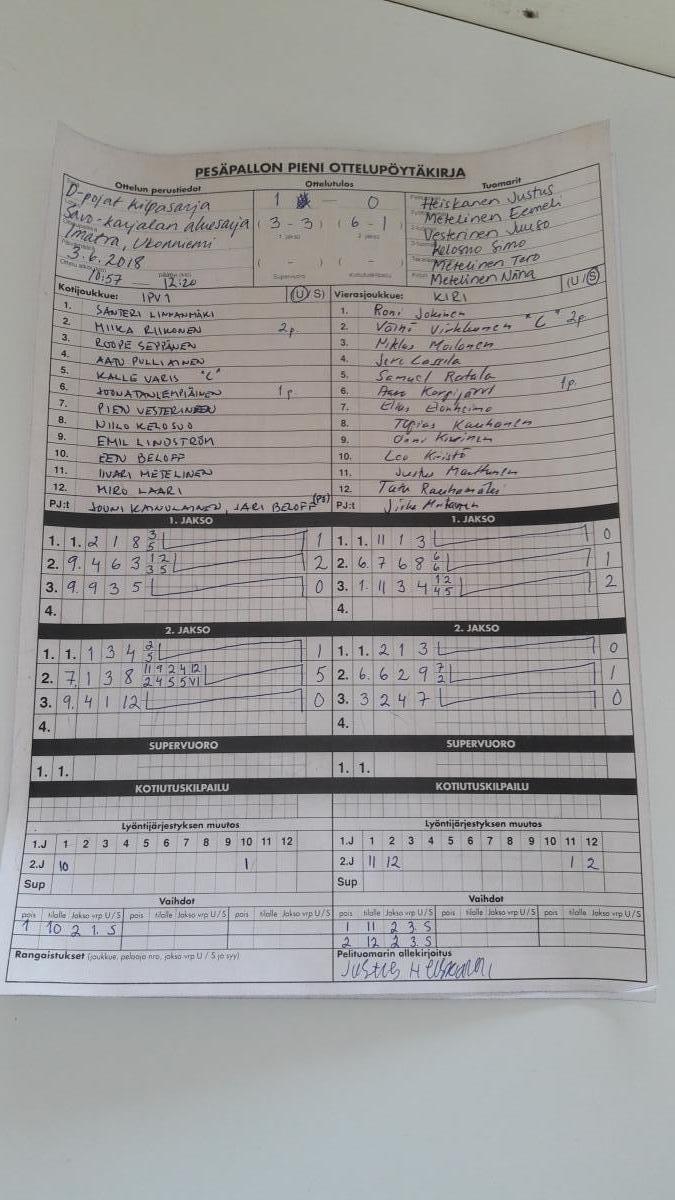 PESÄPALLON PIENI OTTELUPÖYTÄKIRJA
Ottelun perustiedot
Ottelutulos
Tuomarit
D-pojat kilpasarja
Savo-karjalan aluesarja
Imatra, Ukonniemi
3.6.2018
10:57 — 12:20
1 — 0
( 3 - 3 ) ( 6 - 1 )
1. jakso 2. jakso
( - ) ( - )
Supervuoro Kotiutuskilpailu
Heiskanen Justus
Metelinen Eemeli
Vesterinen Juuso
Kelosuo Simo
Metelinen Tero
Metelinen Nina
Kotijoukkue: IPV 1 (U/S)
1. SANTERI LINNANMÄKI
2. MIIKA RIIKONEN 2p.
3. ROOPE SEPPÄNEN
4. AATU PULLIAINEN
5. KALLE VARIS "C"
6. JOONATAN LEMPIÄINEN 1p.
7. PIEN VESTERINEN
8. NIILO KELOSUO
9. EMIL LINDSTRÖM
10. EEN BELOFF
11. IIVARI METELINEN
12. MIRO LAARI
PJ:t JOUNI KAINULAINEN, JARI BELOFF (PJ)
Vierasjoukkue: KIRI (U/S)
1. Roni Jokinen
2. Väinö Virkkunen "C" 2p.
3. Niklas Moilanen
4. Jere Lassila
5. Samuel Ratala
6. 1p.
7. Elias Elonheimo
8. Topias Kauhanen
9. Onni
10. Leo Kristo
11. Justus Marttunen
12. Tatu Rauhamäki
PJ:t
1. JAKSO
1. 1. 2 1 8 3 5 1
2. 9. 4 6 3 1 2 3 5 2
3. 9. 9 3 5 0
4.
1. JAKSO
1. 1. 11 1 3 0
2. 6. 7 6 8 6 6 1
3. 1. 11 3 4 1 2 4 5 2
4.
2. JAKSO
1. 1. 1 3 4 2 5 1
2. 7. 1 3 8 11 9 2 4 12 2 4 5 5 VI 5
3. 9. 4 1 12 0
4.
2. JAKSO
1. 1. 2 1 3 0
2. 6. 6 2 9 7 2 1
3. 3 2 4 7 0
4.
SUPERVUORO
1. 1.
SUPERVUORO
1. 1.
KOTIUTUSKILPAILU
KOTIUTUSKILPAILU
Lyöntijärjestyksen muutos
1.J 1 2 3 4 5 6 7 8 9 10 11 12
2.J 10 1
Sup
Lyöntijärjestyksen muutos
1.J 1 2 3 4 5 6 7 8 9 10 11 12
2.J 11 12 1 2
Sup
Vaihdot
pois tilalle Jakso vrp U/S pois tilalle Jakso vrp U/S pois tilalle Jakso vrp U/S
1 10 2 1. S
Vaihdot
pois tilalle Jakso vrp U/S pois tilalle Jakso vrp U/S pois tilalle Jakso vrp U/S
1 11 2 3. S
2 12 2 3. S
Rangaistukset (joukkue, pelaaja nro, jakso vrp U / S ja syy)
Pelituomarin allekirjoitus
Justus Heiskanen